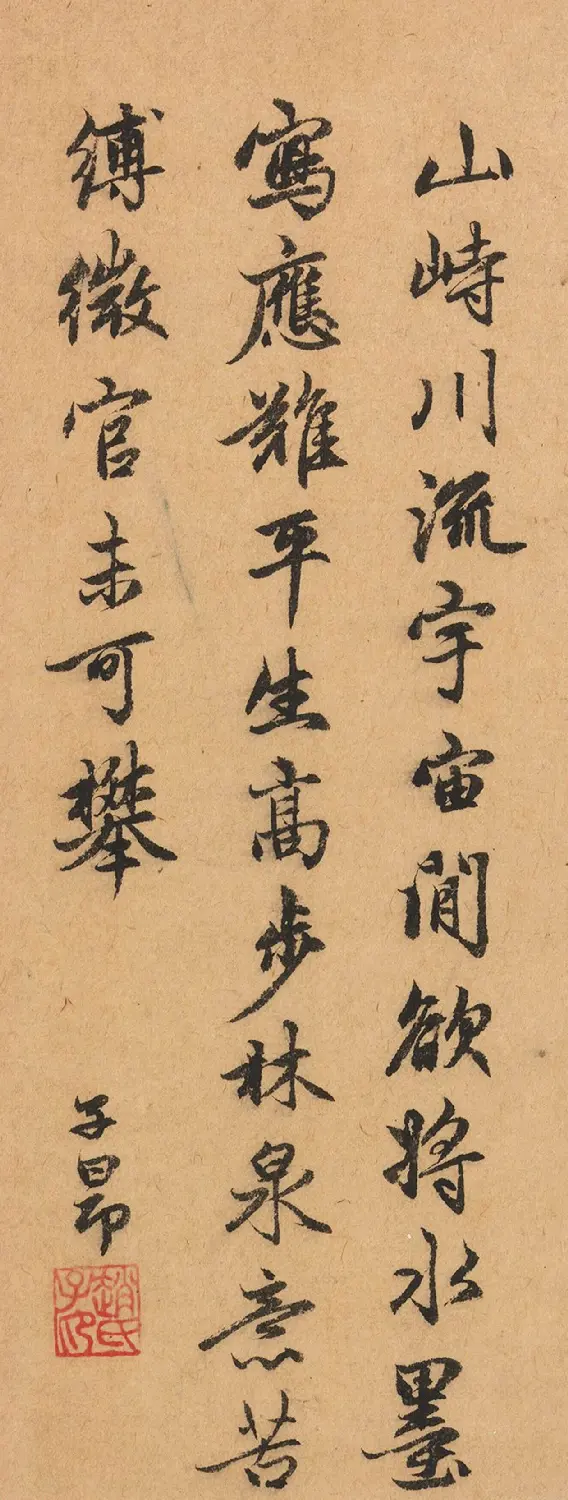 山峙川流宇宙間欲將水墨
寫應難平生高步林泉意苦
縛微官未可攀
子昂
趙氏子印